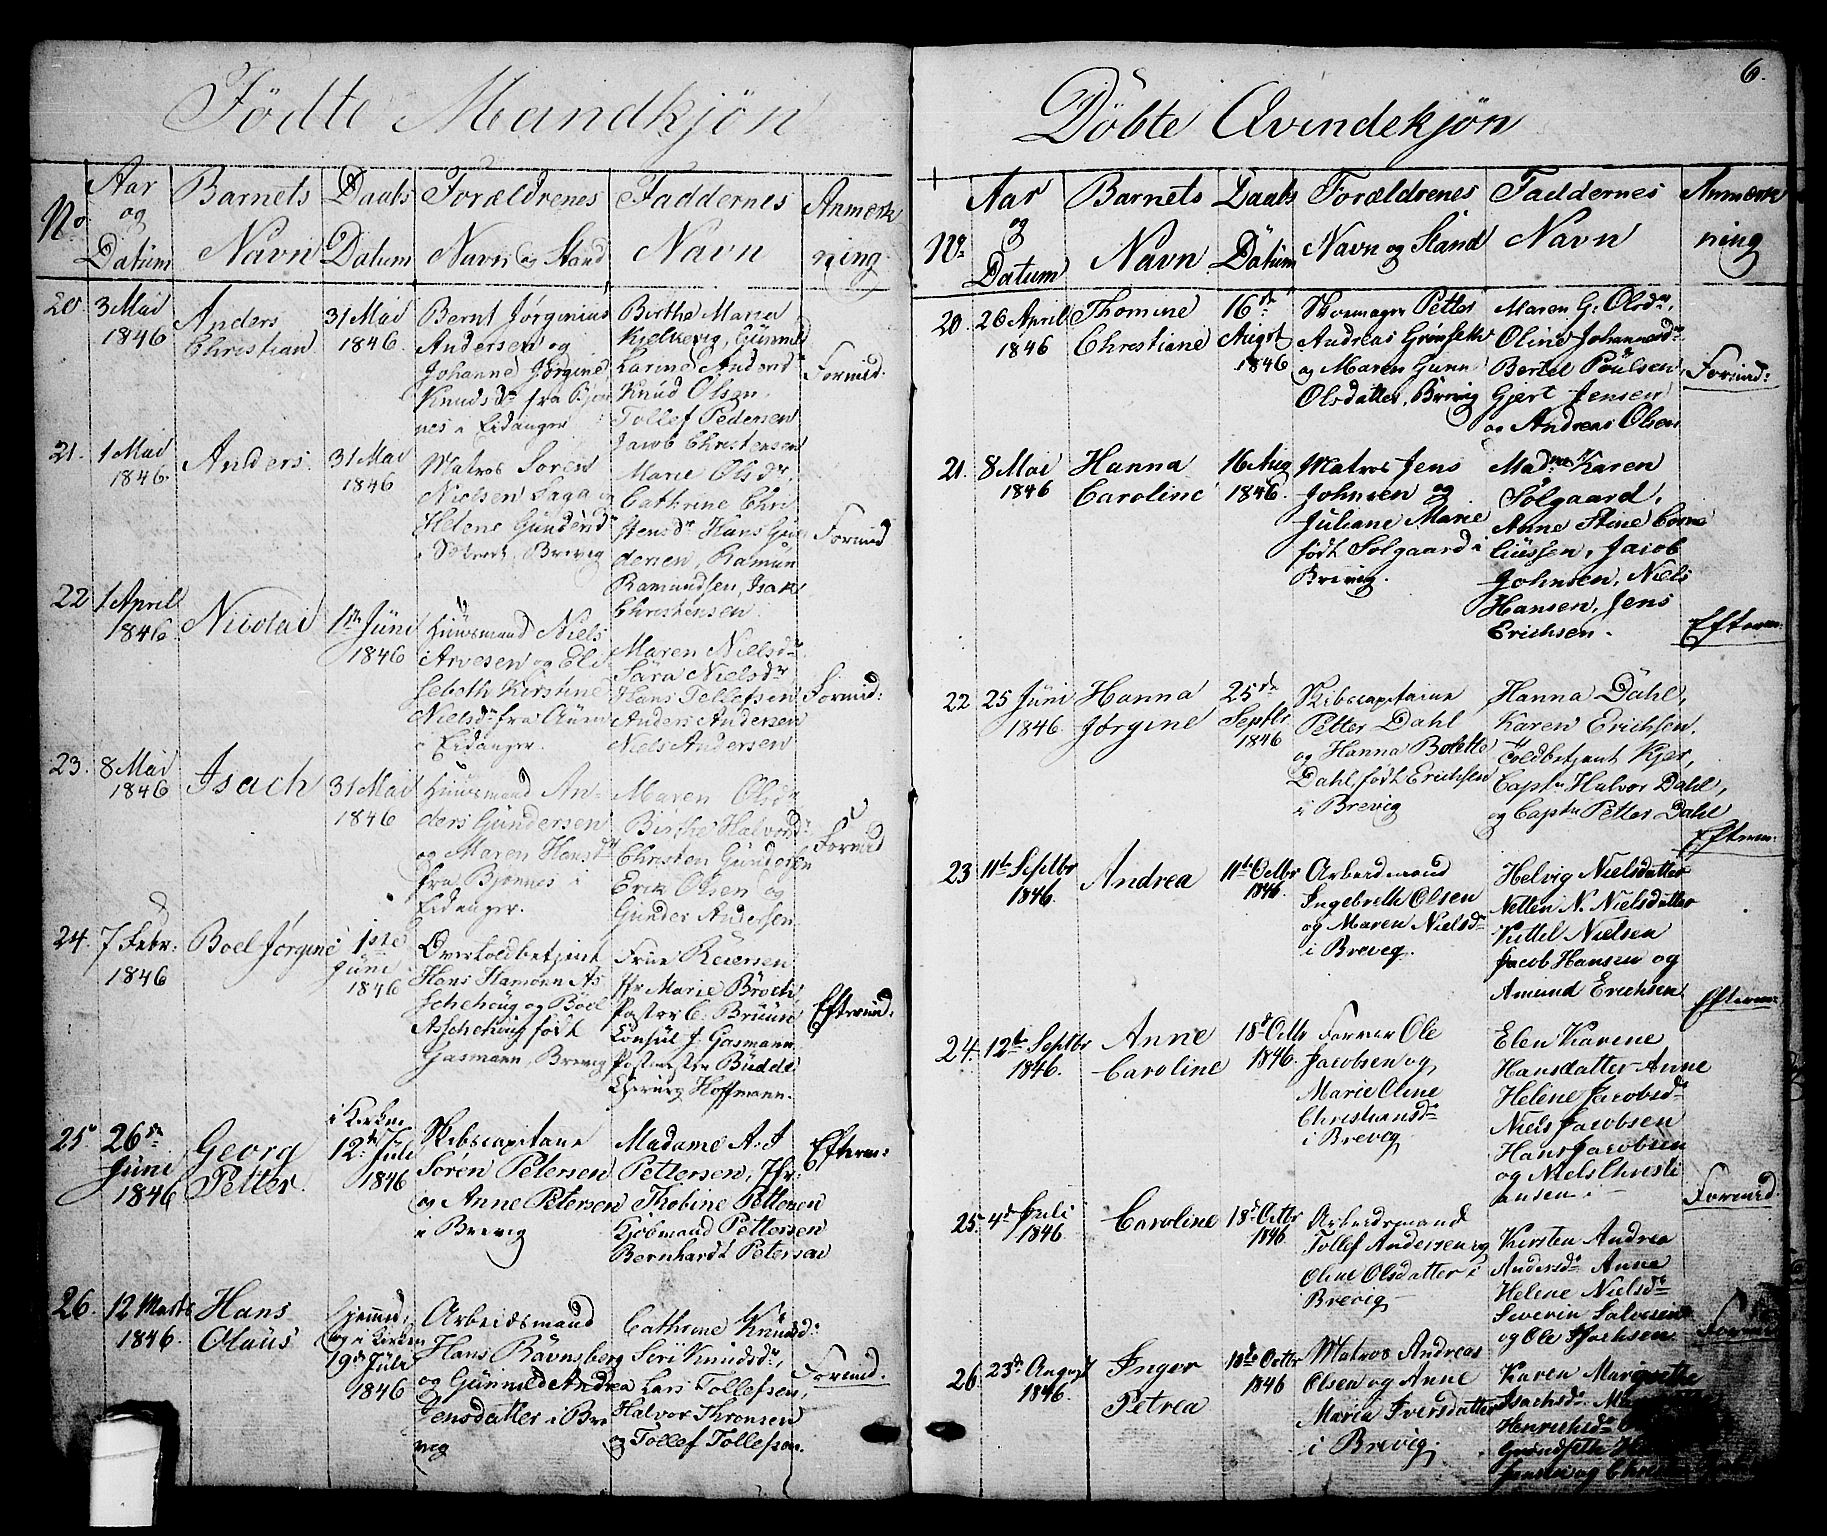 Födte Mandkjön
No.
Aar og Datum
Barnets Navn
Daabs Datum
Forældrenes Navn og Stand
Faddernes Navn
Anmærkning.
20
3 Mai
1846
Anders
Christian
31 Mai
1846
Bernt Jörginius
Andersen og
Johanne Jörgine
Knudsdr fra Bjön
nes i Eidanger
Birthe Maria
Kjelkevig, Gunnild
Karine Andersd
Knud Olsen,
Tollef Pedersen
Jacob Christensen
Formid.
21.
1 Mai
1846.
Anders.
31 Mai
1846
Matros Sören
Nielsen Saga og
Helene Gundersd
i Brevig
Marie Olsdr
Cathrine Chri
stensdr Hans Gun
dersen, Ramun
Ramundsen, Isak
Christensen
Formid
22
1 April
1846
Nicolai
1ste Juni
1846
Huusmand Niels
Arvesen og Eli
sebeth Kirstine
Nielsdr fra
i Eidanger.
Maren Nielsdr
Sara Nielsdr
Hans Tellefsen
Anders Andersen
Niels Andersen
Formid:
23.
8 Mai
1846
Isach
31 Mai
1846
Huusmand An-
ders Gundersen
og Maren Hansdr
fra Bjönnes i
Eidanger.
Maren Olsdr
Birthe Halvorsdr
Christen Gundersen
Erik Olsen og
Gunder Andersen
Formid
24.
7 Febr:
1846
Boel Jörgine
1ste
Juni
1846
Overtoldbetjent
Hans Hamonn As
schehoug og Boel
Asschehoug födt
Gasmann, Brevig
Frue Reiersen
Jfr Marie Broch,
Pastor C. Bruun
Konsul J. Gasmann
Postmester Budde
Chirurg Hoffmann.
Eftermid.
25
26de
Juni
1846
Georg
Petter
i Kirken
12de Juli
1846
Skibscapitain
Sören Petersen
og Anne Petersen
i Brevig
Madame A. J
Pettersen, Jfr:
Thobine Pettersen
Kjöbmand Pettersen
Bernhardt Petersen
Efterm:
26.
12 Marts
1846.
Hans
Olaus
hjemmed,
og i Kirken
19de Juli
1846
Arbeidsmand
Hans Ravnsberg
og Gunnild Andrea
Jensdatter i Bre
vig
Cathrine Knudsd:
Siri Knudsdr,
Lars Tollefsen,
Halvor Thronsen
og Tollef Tollefsen.
Formid.
6.
Döbte Qvindekjön
No.
Aar og Datum
Barnets Navn
Daabs Datum
Forældrenes Navn og Stand
Faddernes Navn
Anmærkning
20.
26 April
1846
Thomine
Christiane
16de
Augst
1846
Skomager Petter
Andreas Grönseth
og Maren Gunn
Olsdatter, Brevig
Maren G: Olsdr,
Oline Johannesdr
Bertel Poulsen,
Gjert Jensen
og Andreas Olsen
Formid:
21.
8 Mai
1846
Hanna
Caroline
16 Aug
1846.
Matros Jens
Johnsen og
Juliane Marie
födt Solgaard i
Brevig.
Madme Karen
Solgaard,
Anne Stine Corne
liussen, Jacob
Johnsen, Niels
Hansen, Jens
Erichsen.
Efterm:
22
25 Juni
1846.
Hanna
Jörgine
25de
Septbr
1846
Skibscapitaine
Petter Dahl
og Hanna Bolette
Dahl, födt Erichsen
i Brevig
Hanna Dahl,
Karen Erichsen.
Toldbetjent Kjer,
Captn Halvor Dahl,
og Captn Petter Dahl
Efterm:
23
11te Septbr
1846.
Andrea
11te Octbr
1846.
Arbeidmand
Ingebreth Olsen
og Maren Nielsd:
i Brevig.
Helvig Nielsdatter
Netten N. Nielsdatter
Kittel Nielsen
Jacob Hansen og
Amund Erichsen
Efterm:
24.
12te Septbr
1846.
Anne
Caroline
18de Octbr
1846.
Formær Ole
Jacobsen og
Marie Oline
Christiansdr
i Brevig
Elen Karene
Hansdatter Anne
Helene Jacobsdr
Niels Jacobsen
Hans Jacobsen
og Niels Christi
ansen.
Formid.
25.
4de Juli
1846
Caroline
18de Octbr
1846.
Arbeidsmand
Tollef Andersen og
Oline Olsdatter i
Brevig
Kirsten Andrea
Andersdr Anna
Helene Nielsdr
Severin Salvesen
og Ole Isachsen
Formid
26.
23de August
1846
Inger
Petrea
18de Octbr
1846
Matros Andreas
Olsen og Anne
Maria Iversdatter
i Brevig.
Karen Margrethe
Isachsdr
Henrichsdr
Grönseth
Jensen og